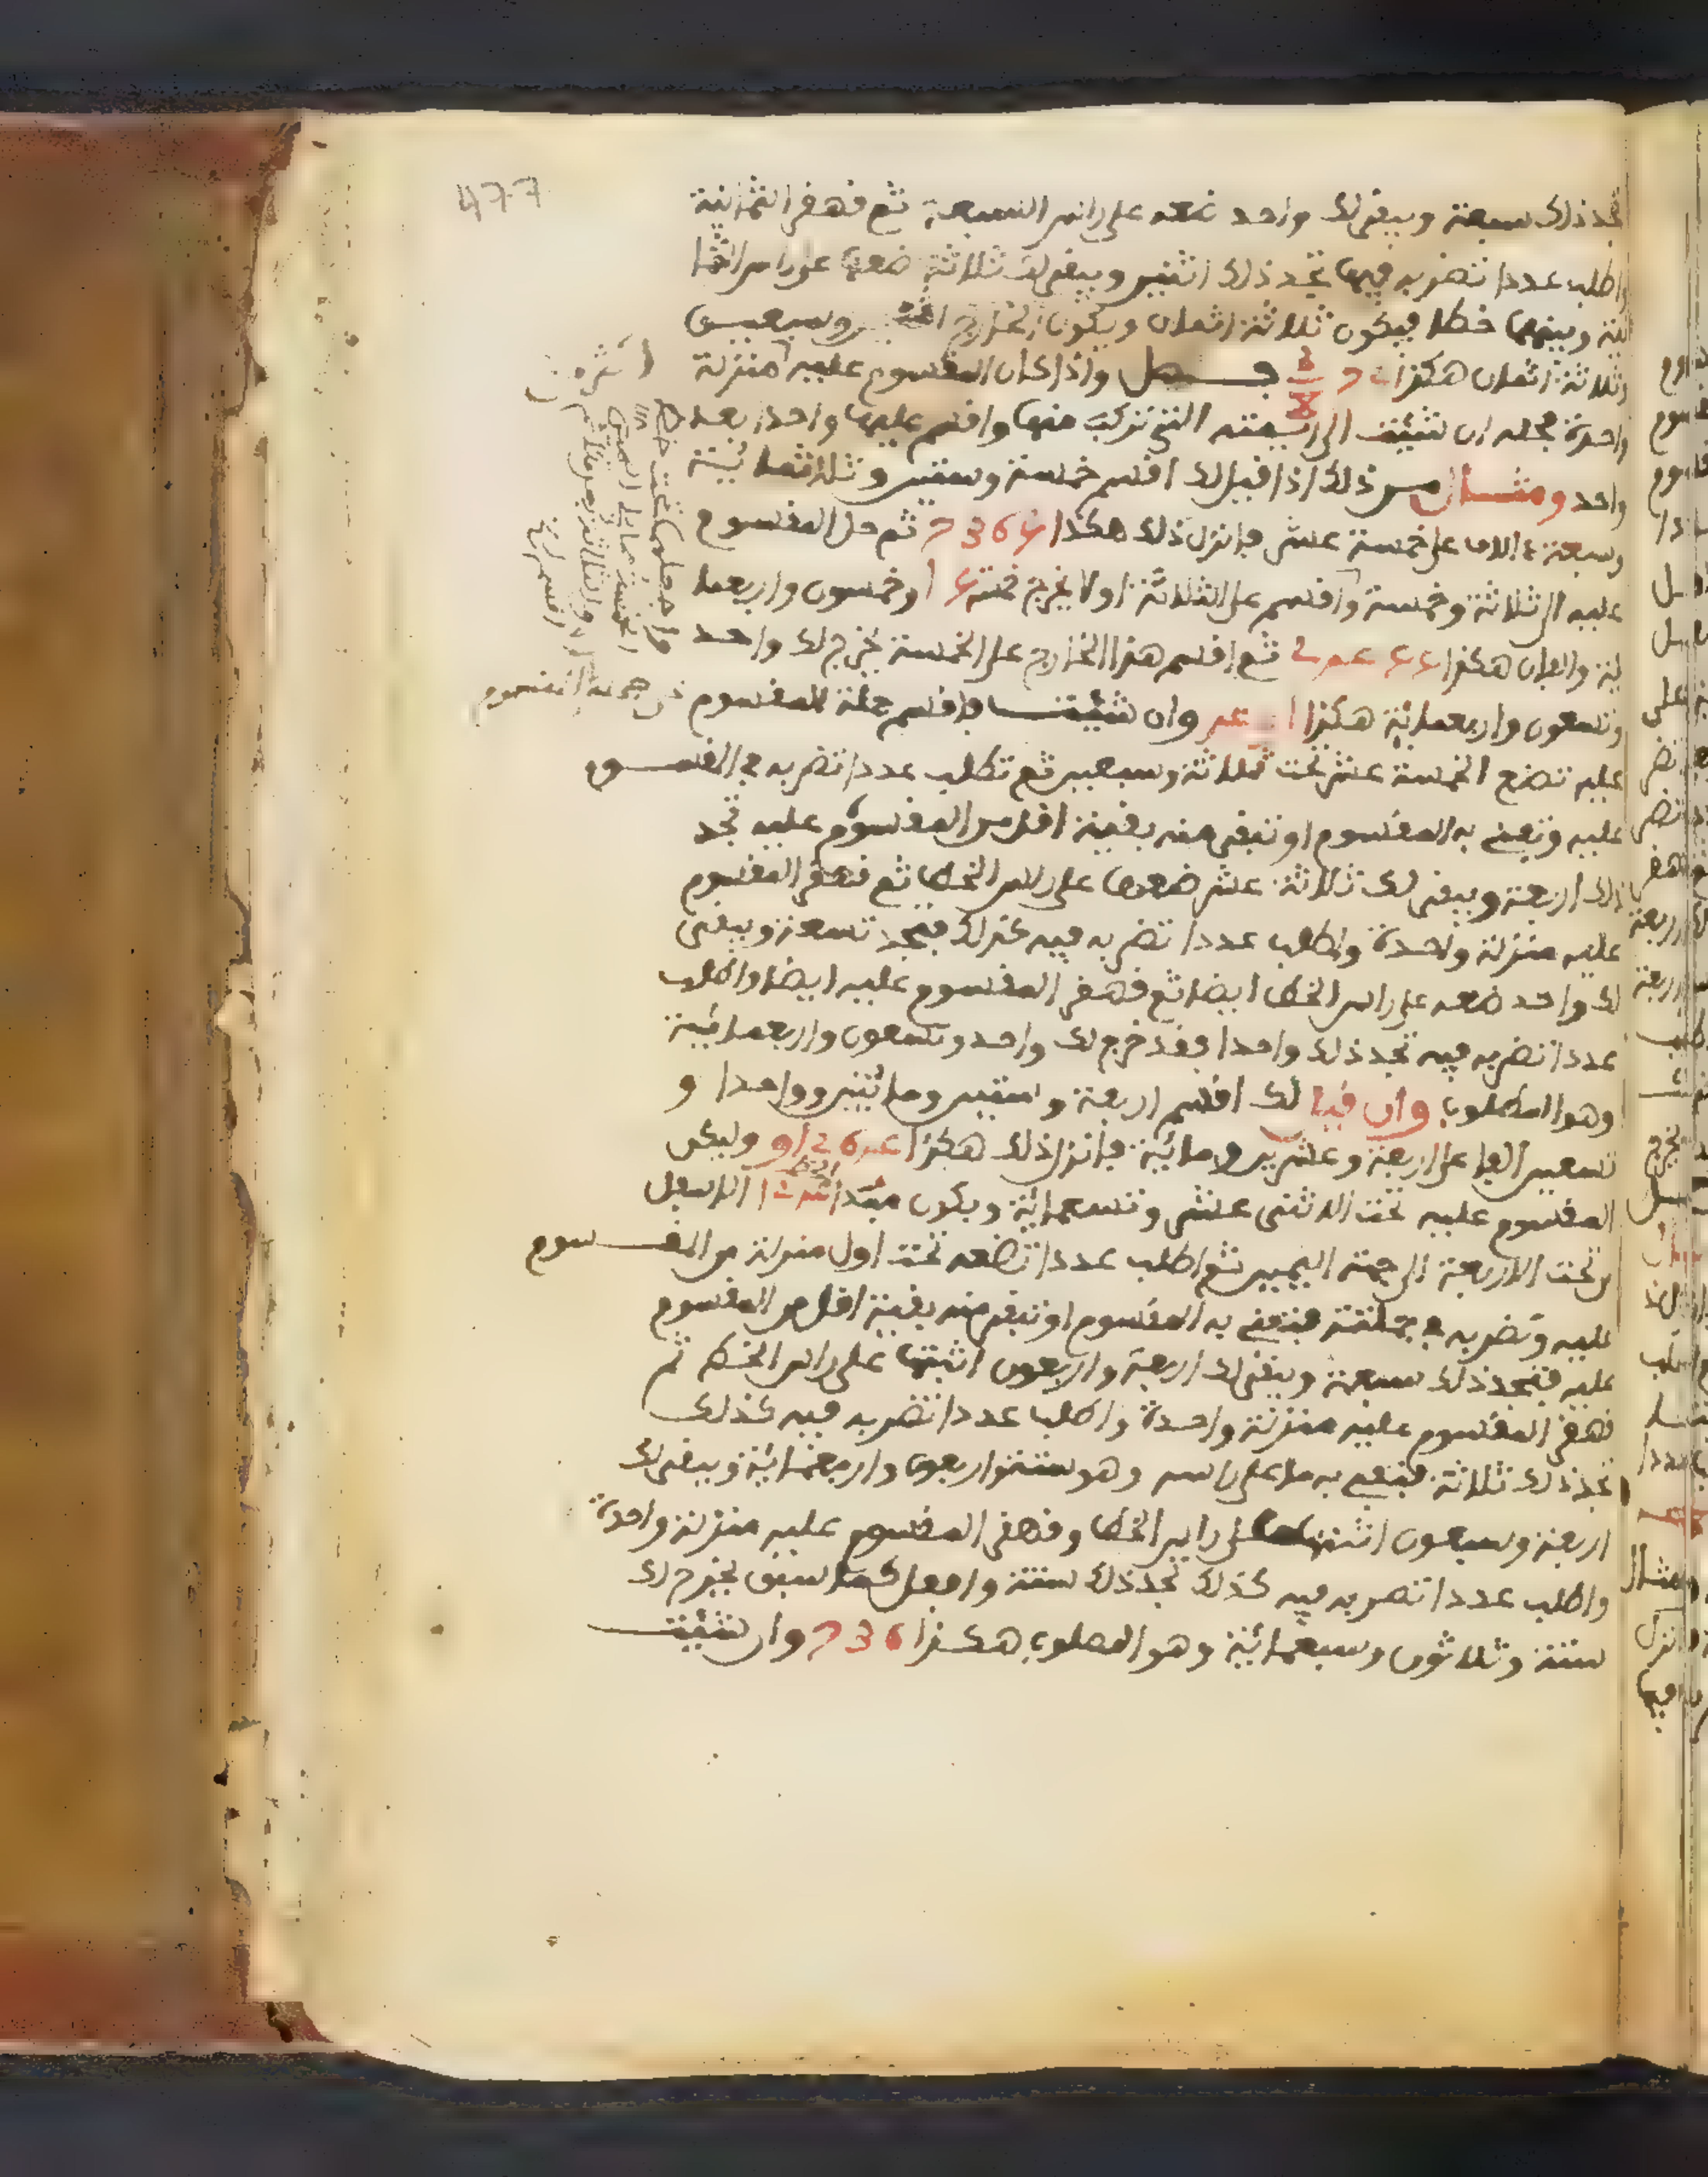 477
تجد ذلك سبعة ويبقى لك واحد ضعه على راس السبعة ثم قهقر الثمانية
واطلب عددا تضربه فيها تجد ذلك اثنين ويبقى لك ثلاثة ضعها على راس الثما
نية وبينهما خطا فيكون ثلاثة اثمان ويكون الخارج وسبعين
وثلاثة اثمان هكذا فصل واذا كان المقسوم عليه منزلة
واحدة فحله ان شئت الى ايمته التي تركب منها واقسم عليها واحدا بعد
واحد ومثال من ذلك اذا قيل لك اقسم خمسة وستين وثلاثمائة
وسبعة ءالاف على خمسة عشر فانزل ذلك هكذا 7365 ثم حل المقسوم
عليه الى ثلاثة وخمسة واقسم على الثلاثة اولا يخرج خمسة وخمسون واربعما
ئة والفان هكذا 2455 ثم اقسم هذا الخارج على الخمسة يخرج لك واحد
وتسعون واربعمائة هكذا وان شئت فاقسم جملة المقسوم
عليه تضع الخمسة عشر تحت ثلاثة وسبعين ثم تطلب عددا تضربه في المقسوم
عليه وتفني به المقسوم او تبقى منه بقية اقل من المقسوم عليه تجد
ذلك اربعة ويبقى لك ثلاثة عشر ضعها على راس الخط ثم قهقر المقسوم
عليه منزلة واحدة واطلب عددا تضربه فيه كذلك فتجد تسعة ويبقى
لك واحد ضعه على راس الخط ايضا ثم قهقر المقسوم عليه ايضا واطلب
عددا تضربه فيه تجد ذلك واحدا فقد خرج لك واحد وتسعون واربعمائة
وهو المطلوب وان قيل لك اقسم اربعة وستين ومائتين وواحدا و
تسعين الفا على اربعة وعشرين ومائة فانزل ذلك هكذا وليكن
المقسوم عليه تحت الاثنى عشر وتسعمائة ويكون مبدا الاسفل
من تحت الاربعة الى جهة اليمين ثم اطلب عددا تضعه تحت اول منزلة من المقسوم
عليه وتضربه في جملته فتفني به المقسوم او تبقى منه بقية اقل من المقسوم
عليه فتجد ذلك سبعة ويبقى لك اربعة واربعون اثبتها على راس الخط ثم
قهقر المقسوم عليه منزلة واحدة واطلب عددا تضربه فيه كذلك
تجد ذلك ثلاثة فتفني به ما على راسه وهو ستة واربعون واربعمائة ويبقى لك
اربعة وسبعون اثبتها على راس الخط وقهقر المقسوم عليه منزلة واحدة
واطلب عددا تضربه فيه كذلك تجد ذلك ستة وافعل كما سبق يخرج لك
ستة وثلاثون وسبعمائة وهو المطلوب هكذا 736 وان شئت